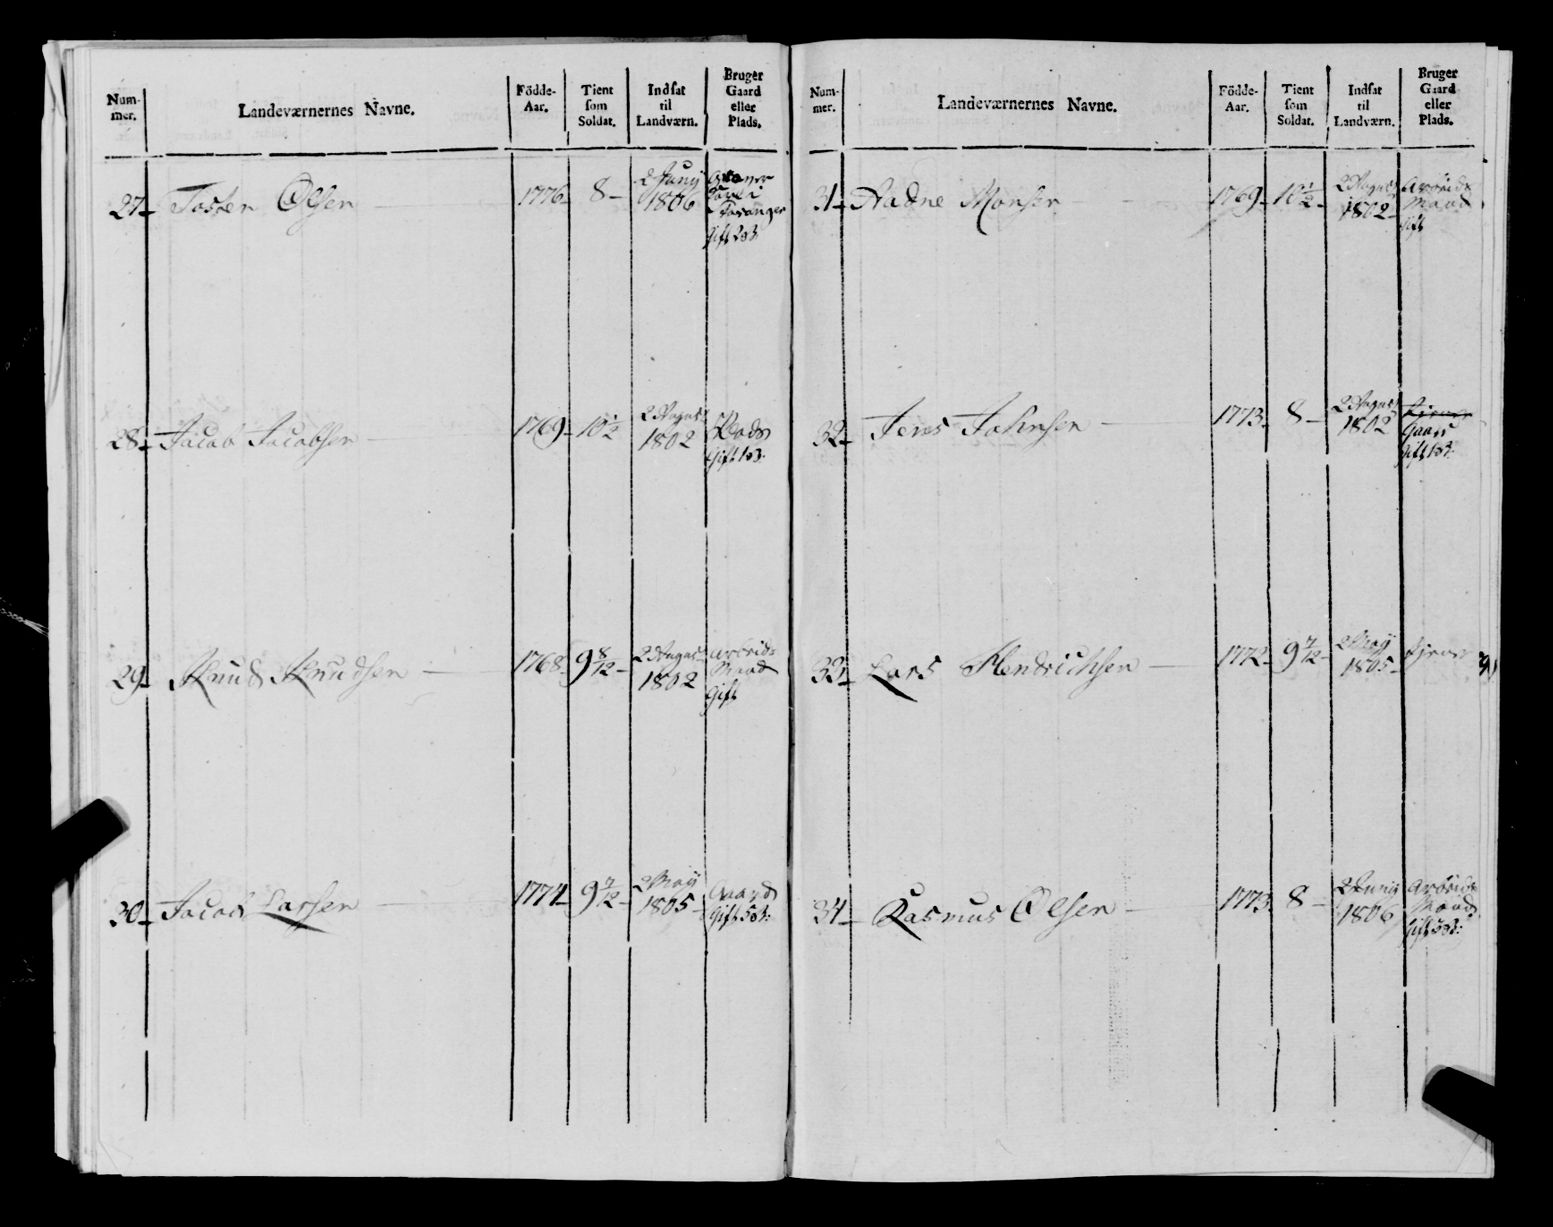 Num-
mer.
Landeværnernes Navne.
Födde-
Aar.
Tient
som
Soldat.
Indsat
til
Landværn.
Bruger
Gaard
eller
Plads.
27 Tosten Olsen 1776 8 2 Juny
1806
Gift 2 B:
28 Jacob Jacobsen 1769 10 1/2 2 August
1802
Plads
Gift 1 B:
29 Knud Knudsen 1768 9 8/12 2 August
1802
Arbeids
Mand
Gift
30 Jacob Larsen 1774 9 7/12 2 May
1805
Gaard
Gift 5 B:
Num-
mer.
Landeværnernes Navne.
Födde-
Aar.
Tient
som
Soldat.
Indsat
til
Landværn.
Bruger
Gaard
eller
Plads.
31 Aadne Monsen 1769 10 1/2 2 August
1802
Arbeids
Mand
Gift
32 Jens Johnsen 1773 8 2 August
1802
Gaard
Gift 1 B:
33 Lars Hendrichsen 1772 9 7/12 2 May
1805
34 Rasmus Olsen 1773 8 2 Juny
1806
Arbeids
Mand
Gift 3 B: